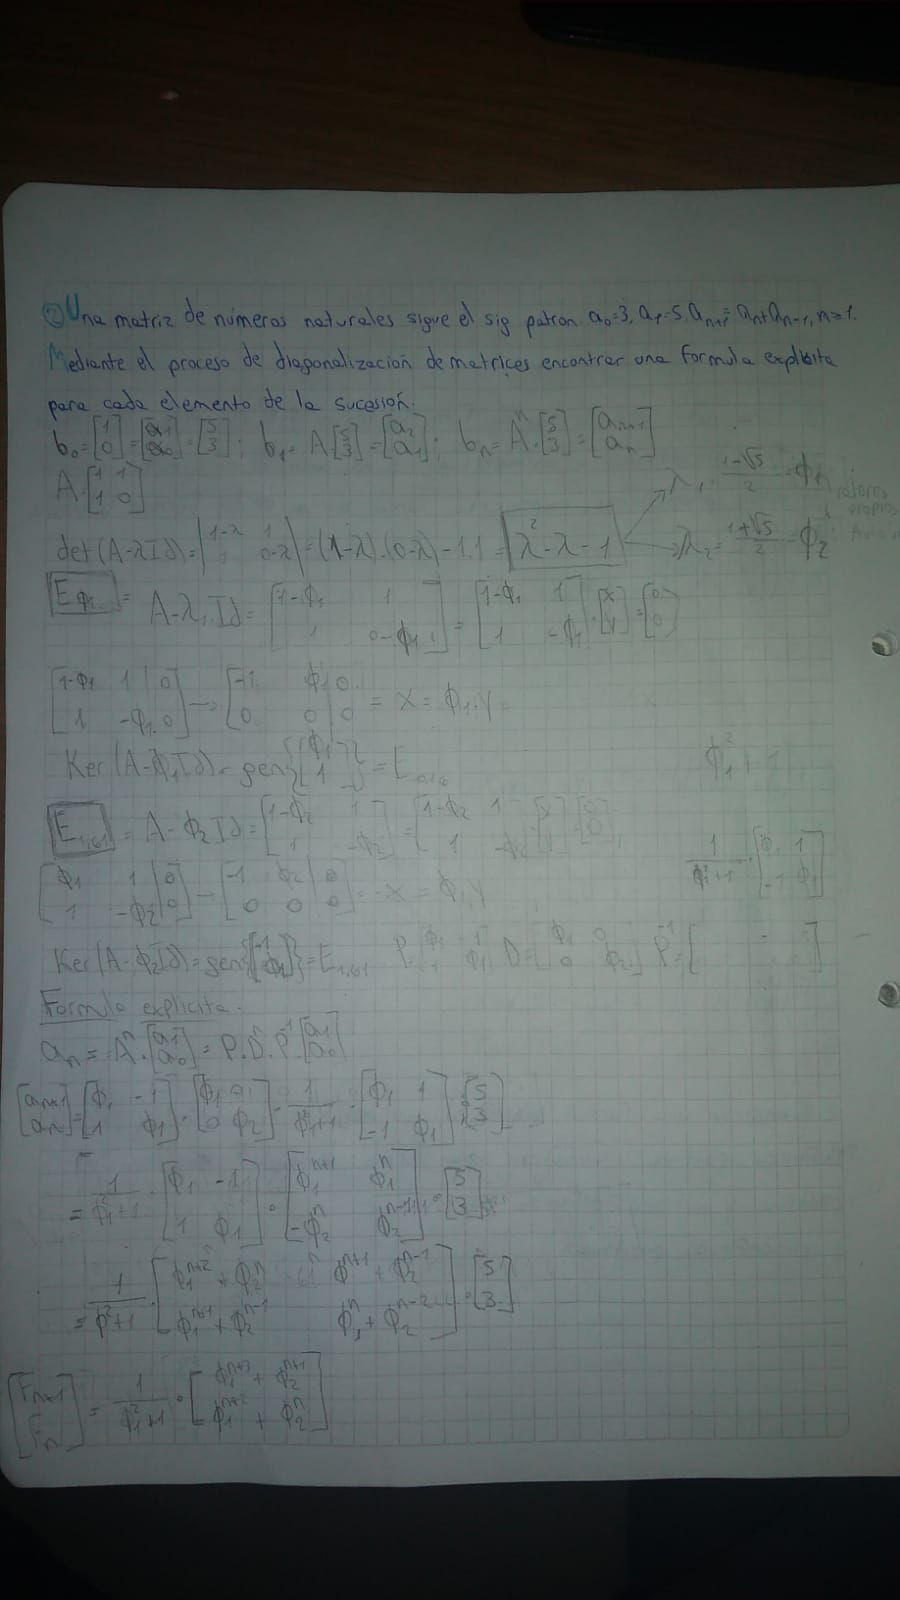 ② Una matriz de números naturales sigue el sig patron. a₀=3, a₁=5, aₙ₊₁=aₙ+aₙ₋₁, n≥1.
Mediante el proceso de diagonalización de matrices encontrar una formula explicita
para cada elemento de la sucesión.
b₀=[1; 0]=[a₁; a₀]=[5; 3]; b₁=A·[5; 3]=[a₂; a₁]; bₙ=Aⁿ·[5; 3]=[aₙ₊₁; aₙ]
A·[1 1; 1 0]
det(A-λId)=|1-λ 1; 1 0-λ|=(1-λ).(0-λ)-1.1=λ²-λ-1
λ₁ = (1-√5)/2 = ϕ₁
λ₂ = (1+√5)/2 = ϕ₂
Eϕ₁ = A-λ₁.Id = [1-ϕ₁ 1; 1 0-ϕ₁] = [1-ϕ₁ 1; 1 -ϕ₁]·[x; y]=[0; 0]
[1-ϕ₁ 1 | 0; 1 -ϕ₁ | 0] → [-1 ϕ₁ | 0; 0 0 | 0] = x = ϕ₁.y
Ker(A-ϕ₁Id)= gen{[ϕ₁; 1]} = E
ϕ₁² + 1
E₁,₆₁ = A-ϕ₂Id=[1-ϕ₂ 1; 1 -ϕ₂] = [1-ϕ₂ 1; 1 -ϕ₂]
1/(ϕ₁²+1) · [ϕ₁ 1; -1 ϕ₁]
[ϕ₁ 1 | 0; 1 -ϕ₂ | 0] → [-1 ϕ₂ | 0; 0 0 | 0] = -x = ϕ₁y
Ker(A-ϕ₂Id)=gen{[-1; ϕ₁]}=E₁,₆₁ P=[ϕ₁ -1; 1 ϕ₁] D=[ϕ₁ 0; 0 ϕ₂] P⁻¹=[ ]
Formula explicita.
aₙ = Aⁿ·[a₁; a₀] = P.Dⁿ.P⁻¹.[a₁; a₀]
[aₙ₊₁; aₙ]=[ϕ₁ -1; 1 ϕ₁]·[ϕ₁ 0; 0 ϕ₂]·1/(ϕ₁²+1)·[ϕ₁ 1; -1 ϕ₁]·[5; 3]
= 1/(ϕ₁²+1)·[ϕ₁ -1; 1 ϕ₁]·[ϕ₁ⁿ⁺¹ ϕ₁ⁿ; -ϕ₂ⁿ ϕ₂ⁿ⁻¹]·[5; 3]
= 1/(ϕ²+1)·[ϕ₁ⁿ⁺²+ϕ₂ⁿ ϕⁿ⁺¹+ϕ₂ⁿ⁻¹; ϕ₁ⁿ⁺¹+ϕ₂ⁿ⁻¹ ϕ₁ⁿ+ϕ₂ⁿ⁻²]·[5; 3]
[Fₙ₊₁; Fₙ] = 1/(ϕ₁²+1)·[ϕ₁ⁿ⁺³+ϕ₂ⁿ⁺¹; ϕ₁ⁿ⁺²+ϕ₂ⁿ]